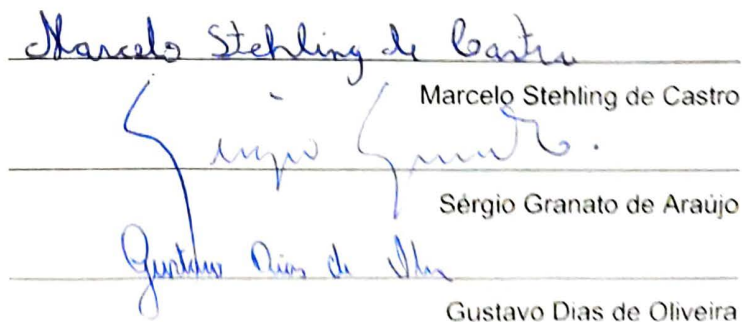 Marcelo Stehling de Castro
Marcelo Stehling de Castro
Sérgio
Sérgio Granato de Araújo
Gustavo Dias de
Gustavo Dias de Oliveira